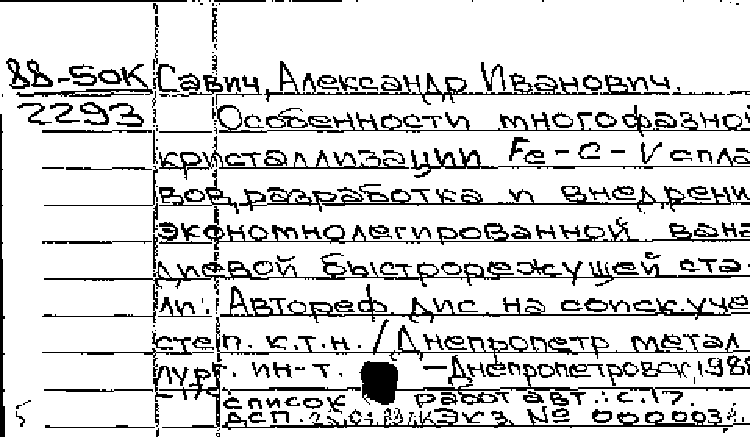 88-50К Савич, Александр Иванович.
2293 Особенности многофазной
кристаллизации Fe-C-V спла-
вов, разработка и внедрени
экономнолегированной вана-
диевой быстрорежущей ста-
ли: Автореф. дис. на соиск. уче
степ. к.т.н. / Днепропетр. метал
лург. ин-т. – Днепропетровск, 1988
список работ авт.: с.17.
ДСП. Экз. №
5